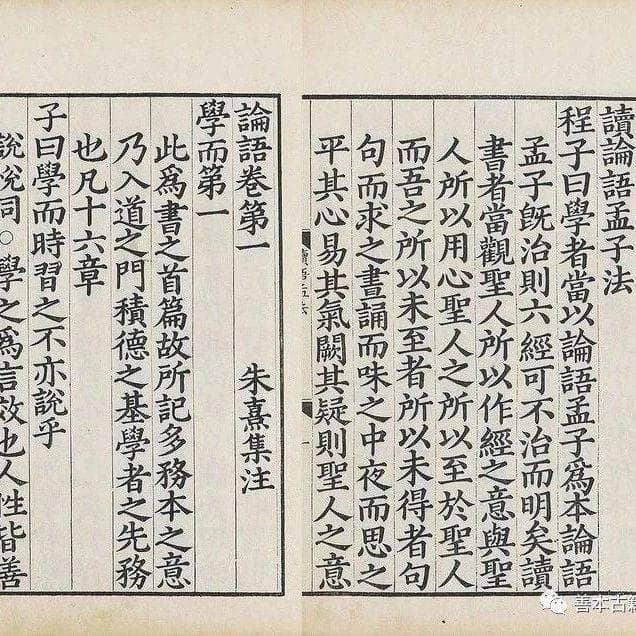 讀論語孟子法
程子曰學者當以論語孟子爲本論語
孟子旣治則六經可不治而明矣讀
書者當觀聖人所以作經之意與聖
人所以用心聖人之所以至於聖人
而吾之所以未至者所以未得者句
句而求之晝誦而味之中夜而思之
平其心易其氣闕其疑則聖人之意
論語卷第一 朱熹集注
學而第一
此爲書之首篇故所記多務本之意
乃入道之門積德之基學者之先務
也凡十六章
子曰學而時習之不亦說乎
說悅同○學之爲言效也人性皆善
善本古籍